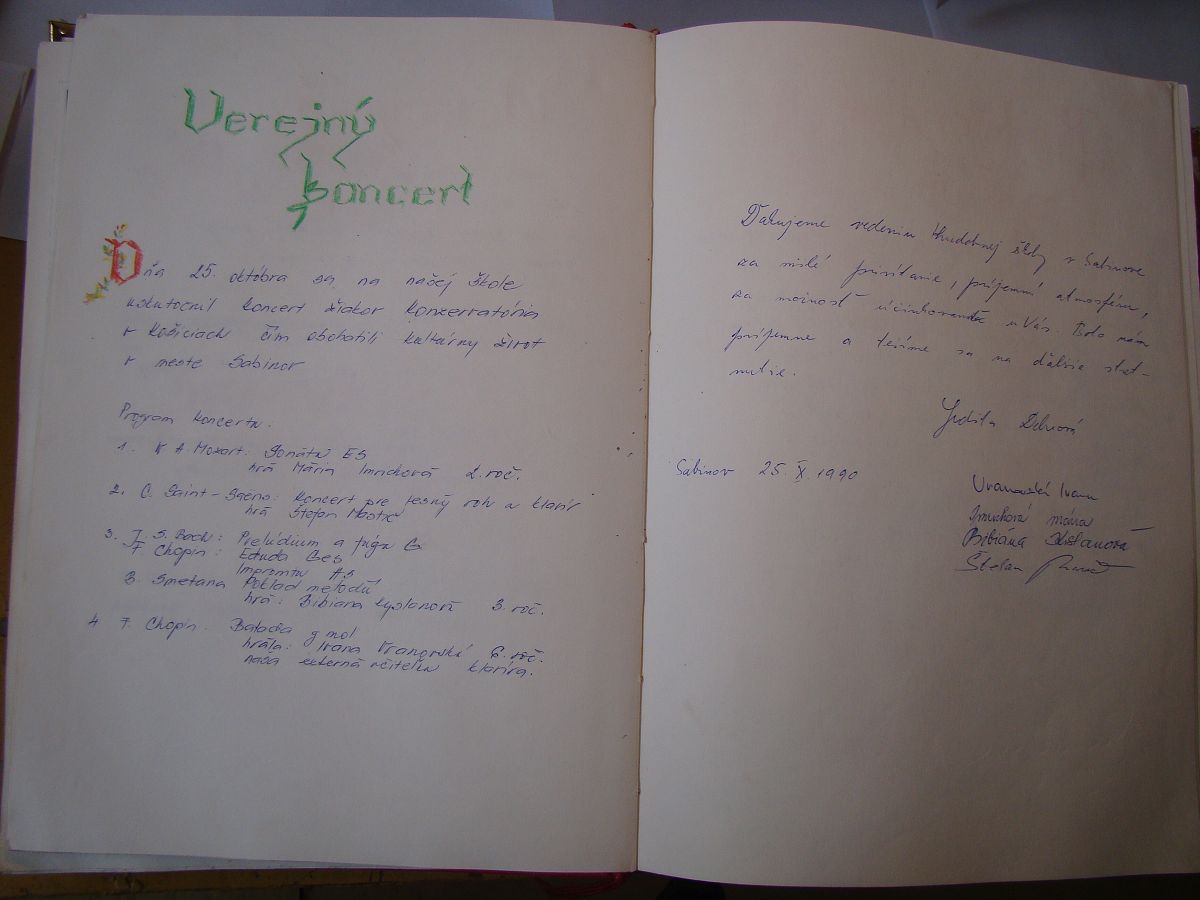 Verejný
koncert
Dňa 25. októbra sa na našej škole
uskutočnil koncert žiakov Konzervatória
v Košiciach čím obohatili kultúrny život
v meste Sabinov
Program koncertu.
1. W A. Mozart: Sonáta ES
hrá Mária Imrichová 2. roč.
2. C. Saint-Saens: Koncert pre lesný roh a klavír
hrá Štefan
3. J. S. Bach: Prelúdium a fúga G
F Chopin: Etuda Ges
Impromtu AS
B. Smetana Poklad melodií
hrá: Bibiana 3. roč.
4 F. Chopin: Balada g mol
hrála: Ivana Vranovská 6. roč.
naša externá učiteľka klavíra.
Ďakujeme vedeniu Hudobnej školy v Sabinove
za milé privítanie, príjemnú atmosféru,
za možnosť účinkovania u Vás. Bolo nám
príjemne a tešíme sa na ďalšie stret-
nutie.
Judita
Sabinov 25. X. 1990
Vranovská Ivana
Imrichová Mária
Bibiána
Štefan